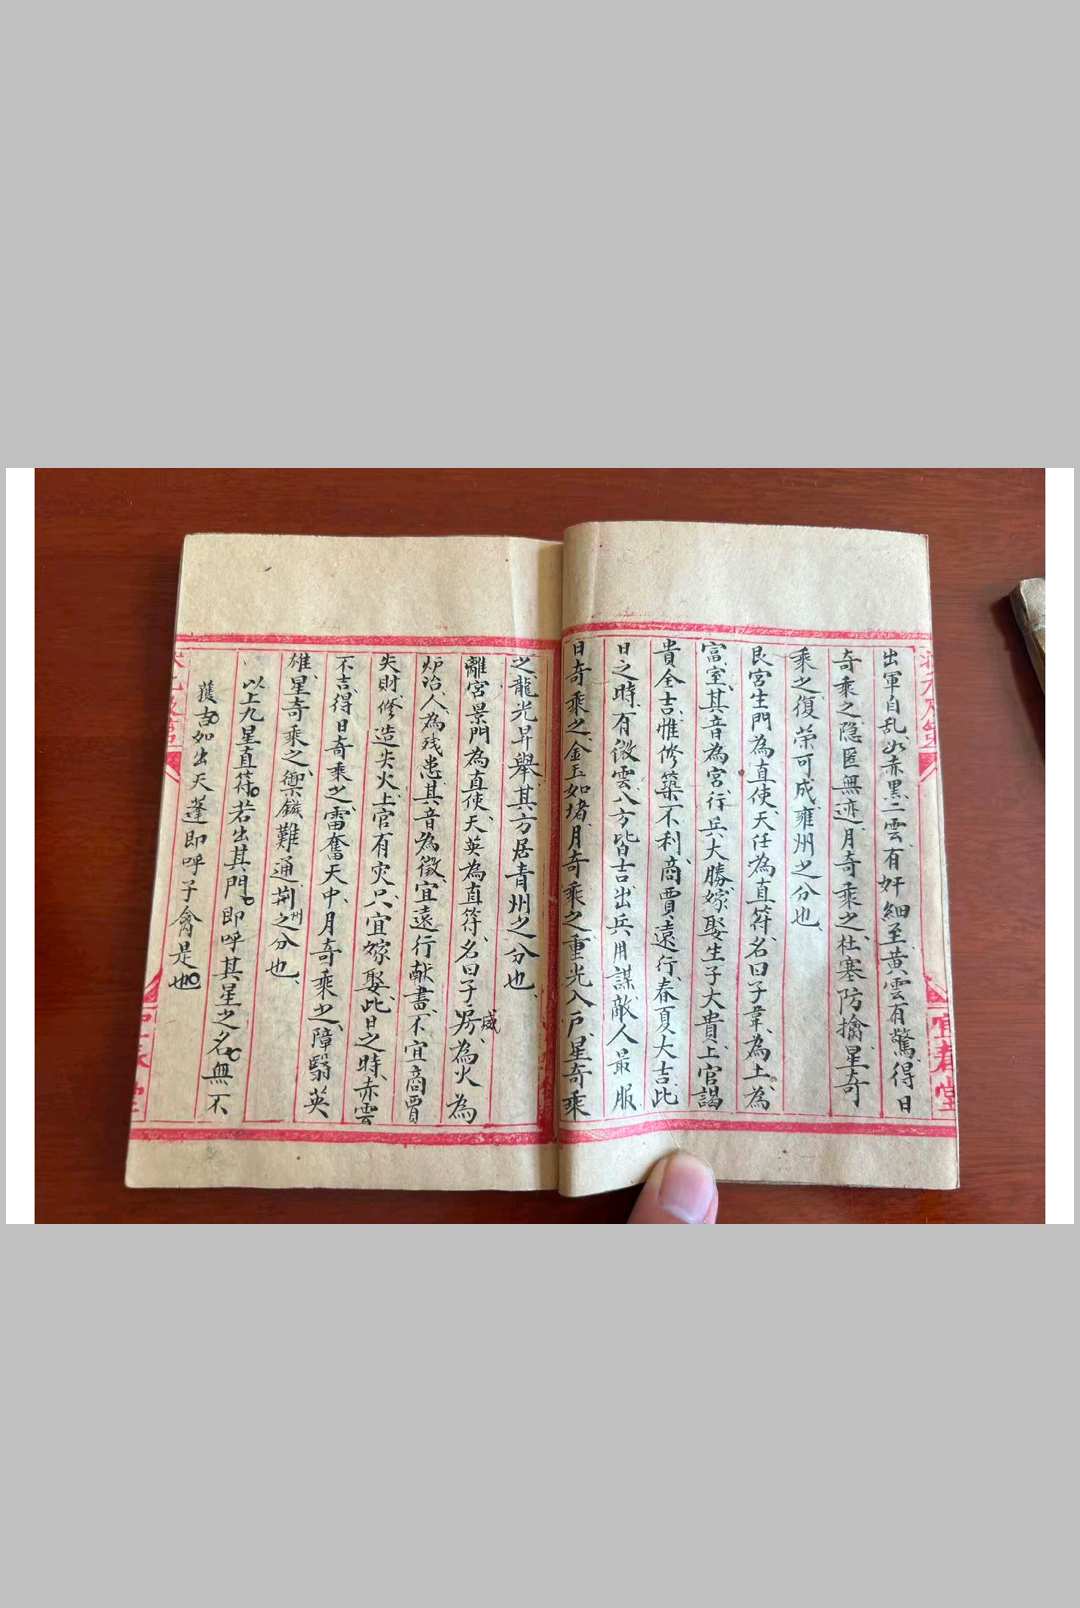 出軍自乱必赤黑二雲有奸細至黄雲有驚得日
奇乘之隐匿無迹月奇乘之杜塞防擒星奇
乘之復荣可成雍州之分也
艮宮生門為直使天任為直符名曰子韋為土為
富室其音為宮行兵大勝嫁娶生子大貴上官謁
貴全吉惟修築不利商賈遠行春夏大吉此
日之時有微雲八方皆吉出兵用謀敵人最服
日奇乘之金玉如堵月奇乘之重光入戶星奇乘
之龍光昇舉其方居青州之分也
離宮景門為直使天英為直符名曰子威為火為
炉冶人為残患其音為徵宜遠行献書不宜商賈
失財修造失火上官有灾只宜嫁娶此日之時赤雲
不吉得日奇乘之雷奮天中月奇乘之障翳英
雄星奇乘之禦難通荆州之分也
以上九星直符若出其門即呼其星之名無不
獲吉如出天蓬即呼子禽是也
宜春堂